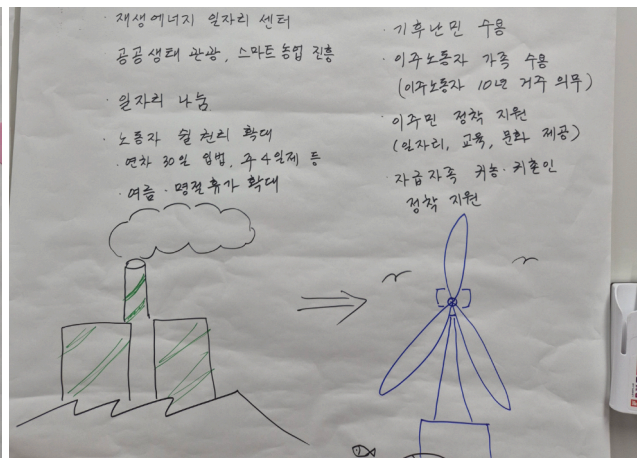 · 재생에너지 일자리 센터
공공생태 관광, 스마트 농업 진흥
· 일자리 나눔
· 노동자 쉴 권리 확대
· 연차 30일 입법, 주 4일제 등
· 여름 · 명절휴가 확대
· 기후난민 수용
· 이주노동자 가족 수용
(이주노동자 10년 거주 의무)
· 이주민 정착 지원
(일자리, 교육, 문화 제공)
· 자급자족 귀농 · 귀촌인
정착 지원